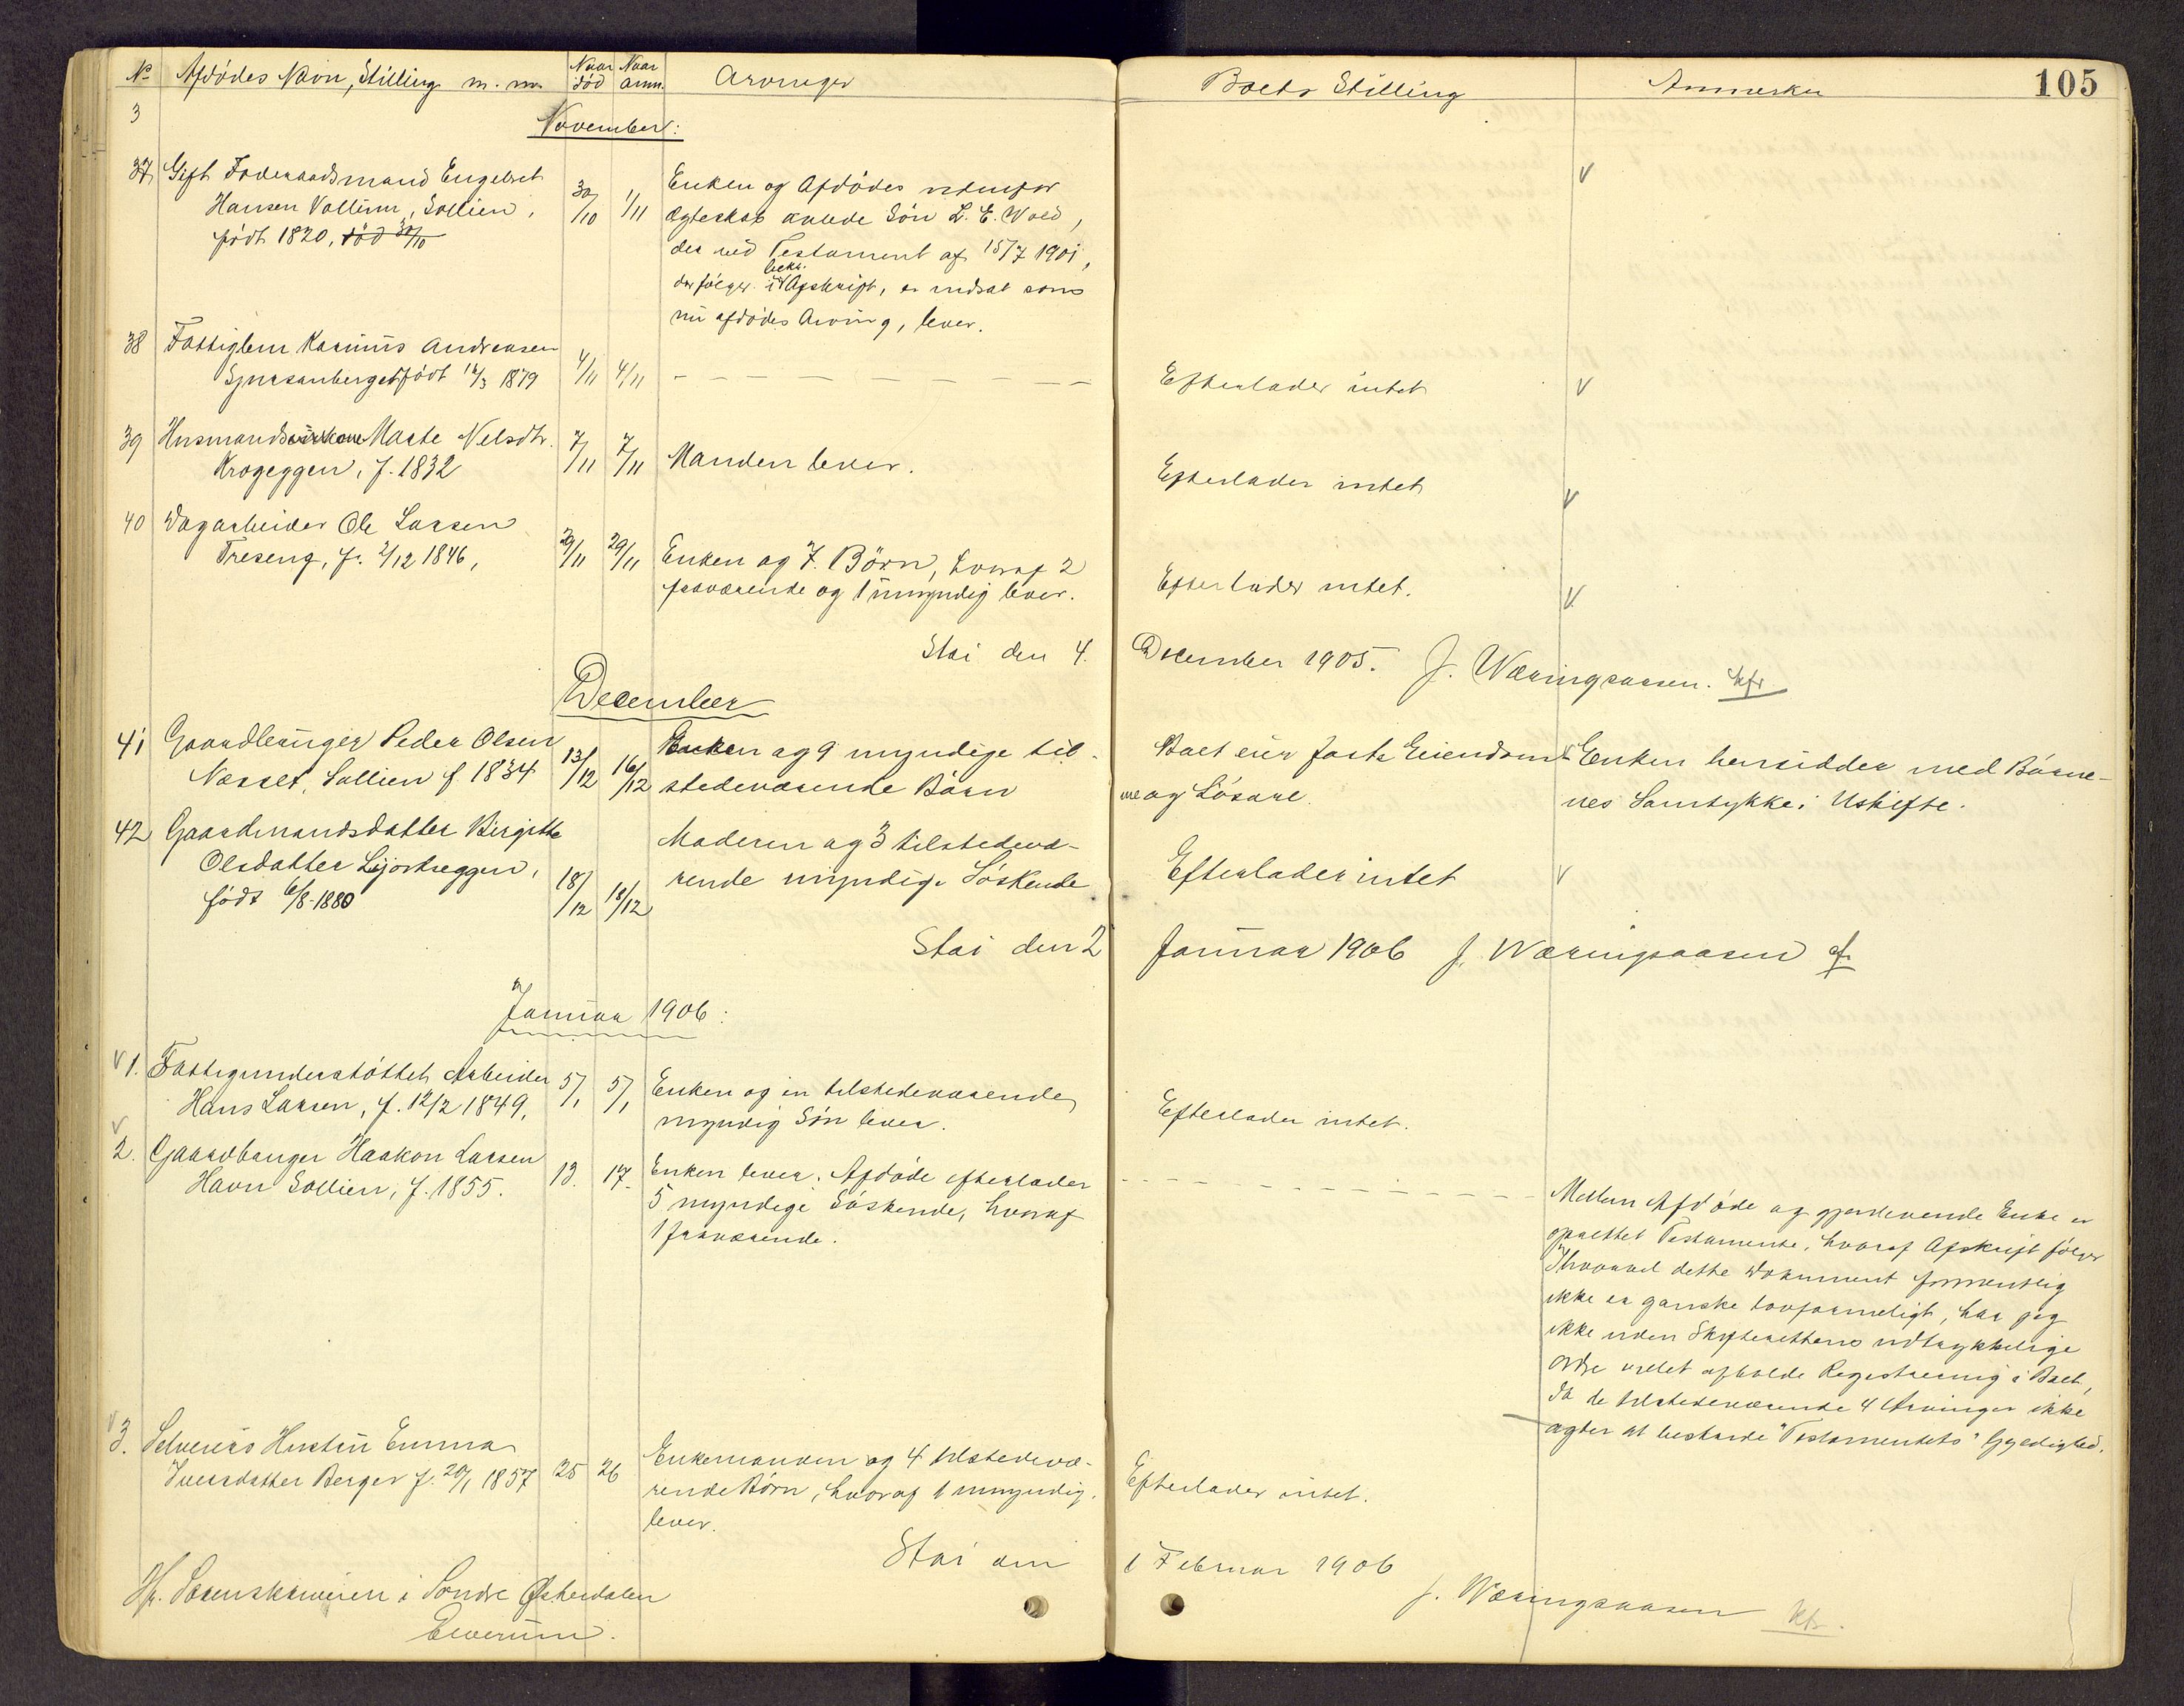 No Afdödes Navn, Stilling m. m. Naar död Naar anm. Arvinger Boets Stilling Anmerkn 105
3
November:
37 Gift Föderaadsmand Engebret
Hansen Vollum, Sollien,
født 1820, död 30/10
30/10 1/11
Enken og Afdödes udenfor
Ægteskab avlede Sön L. E. Wold,
der ved Testament af 15/7 1901,
der følger i bekr. Afskrift, er indsat som
nu afdödes Arving, lever.
V
38 Fattiglem Karinus Andreassen
Sjursanberget født 12/3 1879
4/11 4/11 - - - - - - - -
Efterlader intet V
39 Husmands Marte Nelsdtr.
Krogeggen, f. 1832
7/11 7/11 Manden lever.
Efterlader intet V
40 Dagarbeider Ole Larsen
Treseng, f. 2/12 1846,
29/11 29/11 Enken og 7. Börn, hvoraf 2
fraværende og 1 umyndig lever.
Efterlader intet. V
Stai den 4. December 1905. J. Wæringsaasen. kfr
December
41 Gaardbruger Peder Olsen
Næsset, Sollien f 1834
13/12 16/12
Enken og 9 myndige til-
stedeværende Börn
Boet eier faste Eiendom-
me og Lösöre.
Enken hensidder med Börne-
nes Samtykke i Uskifte.
42 Gaardmandsdatter Birgitte
Olsdatter Ljostreggen,
født 6/8-1880
18/12 18/12
Moderen og 3 tilstedevæ-
rende myndige Söskende
Efterlader intet V
Stai den 2 Januar 1906 J. Wæringsaasen
Januar 1906:
V 1. Fattigunderstöttet Arbeider
Hans Larsen, f. 12/2 1849,
5/1 5/1 Enken og en tilstedeværende
myndig Sön lever.
Efterlader intet.
V 2. Gaardbruger Haakon Larsen
Havn Sollien, f. 1855.
13. 17. Enken lever. Afdöde efterlader
5 myndige Söskende, hvoraf
1 fraværende.
- - - - - - - - - -
Mellem Afdöde og gjenlevende Enke er
oprettet Testamente, hvoraf Afskrift følger
Ihvorvel dette Dokument formentlig
ikke er ganske lovformeligt, har jeg
ikke uden Skifterettens udtrykkelige
Ordre villet afholde Registrering i Boet,
da de tilstedeværende 4 Arvinger ikke
agter at bestride "Testamentets" Gyldighed.
V 3. Selveiers Hustru Emma
Iversdatter Berger f. 20/1 1857
25 26
Enkemanden og 4 tilstedevæ-
rende Börn, hvoraf 1 umyndig.
lever.
Efterlader intet.
Stai den 1 Februar 1906
J. Wæringsaasen kfr.
Hr. Sorenskriveren i Söndre Østerdalen
Elverum.